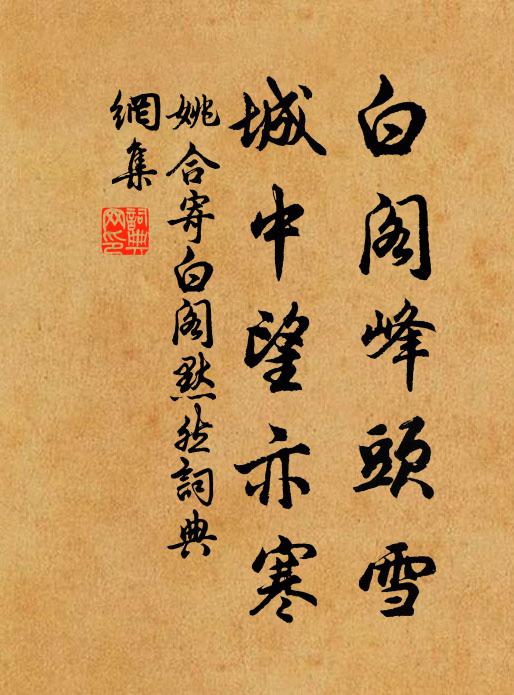 白阁峰頭雪
城中望亦寒
姚合寄白阁默然詞典
網集
詞典
网印